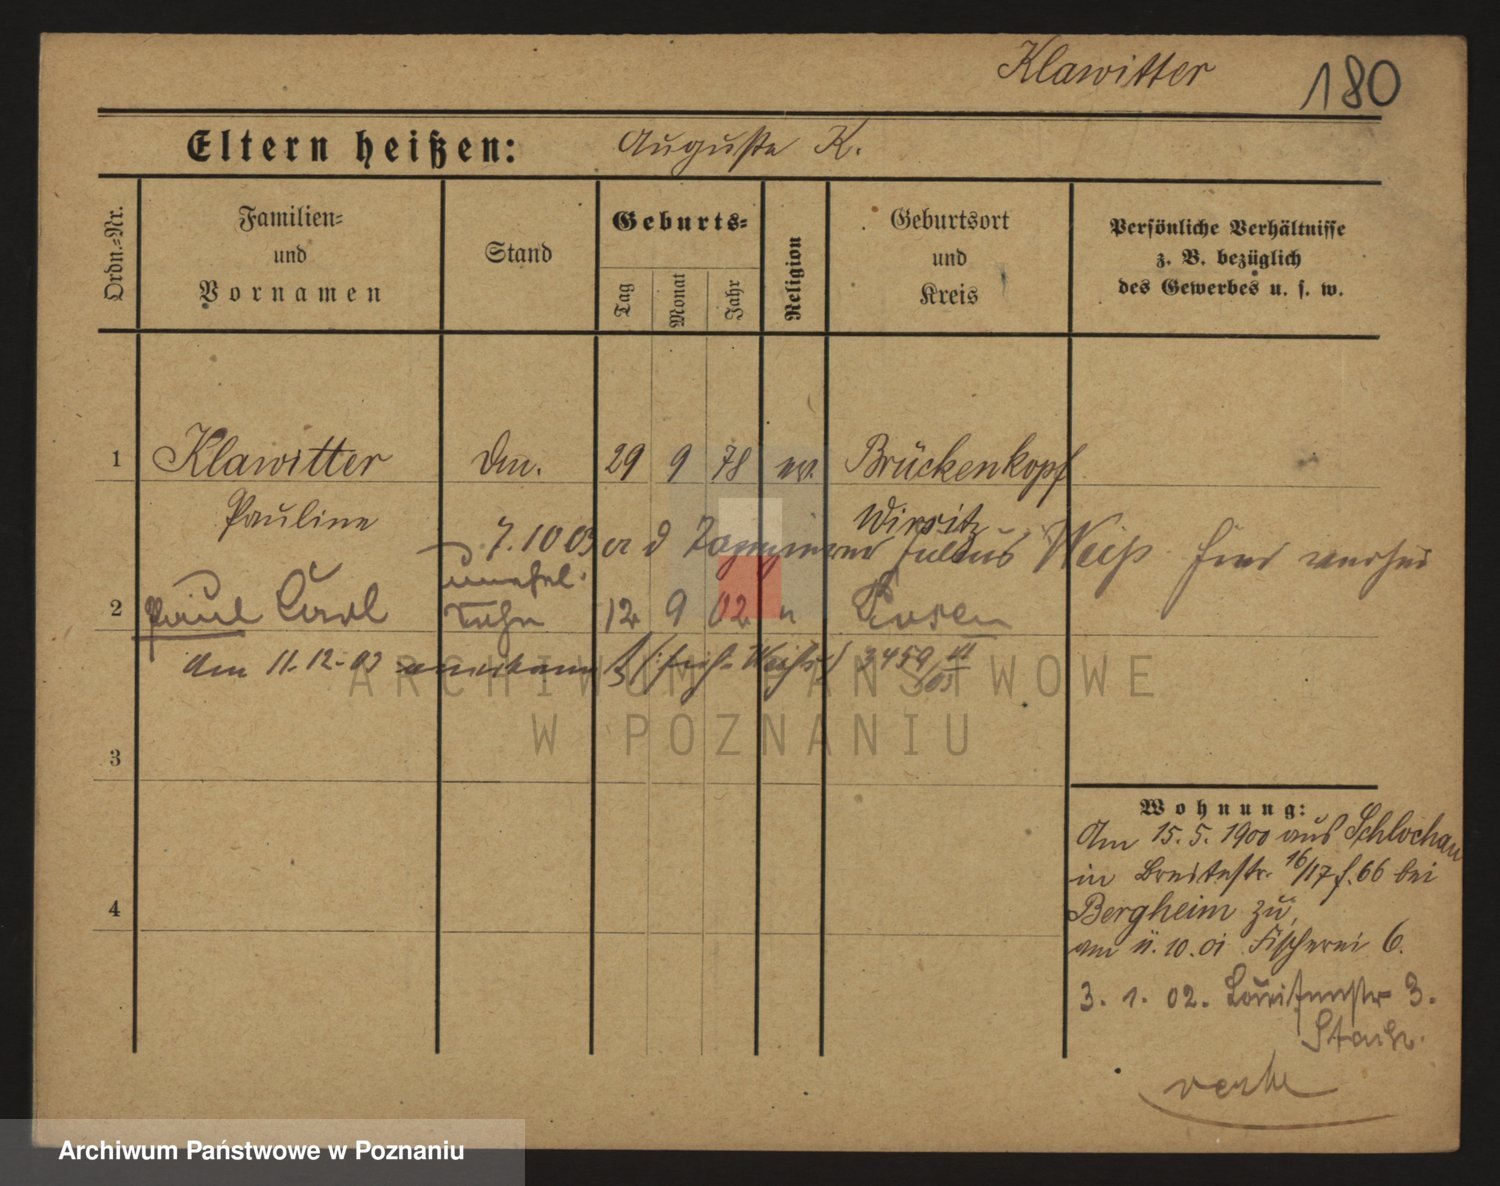 Klawitter 180
Eltern heißen: Auguste K.
Ordn.=Nr.
Familien=
und
Vornamen
Stand
Geburts=
Tag
Monat
Jahr
Religion
Geburtsort
und
Kreis
Persönliche Verhältnisse
z. B. bezüglich
des Gewerbes u. s. w.
1 Klawitter 29 9 78 ev. Brückenkopf
Pauline Wirsitz
7.10 03 d Julius Weiß
unehel.
2 Paul Carl Sohn 12 9 02 " Posen
Am 11.12.03 3459
ARCHIWUM PAŃSTWOWE
W POZNANIU
3
Wohnung:
Am 15.5.1900 aus Schlochau
in Breitestr. 16/17 f. 66 bei
4
Bergheim zu,
am 11.10.01 Fischerei 6.
3. 1. 02. Louisenstr 3.
Archiwum Państwowe w Poznaniu